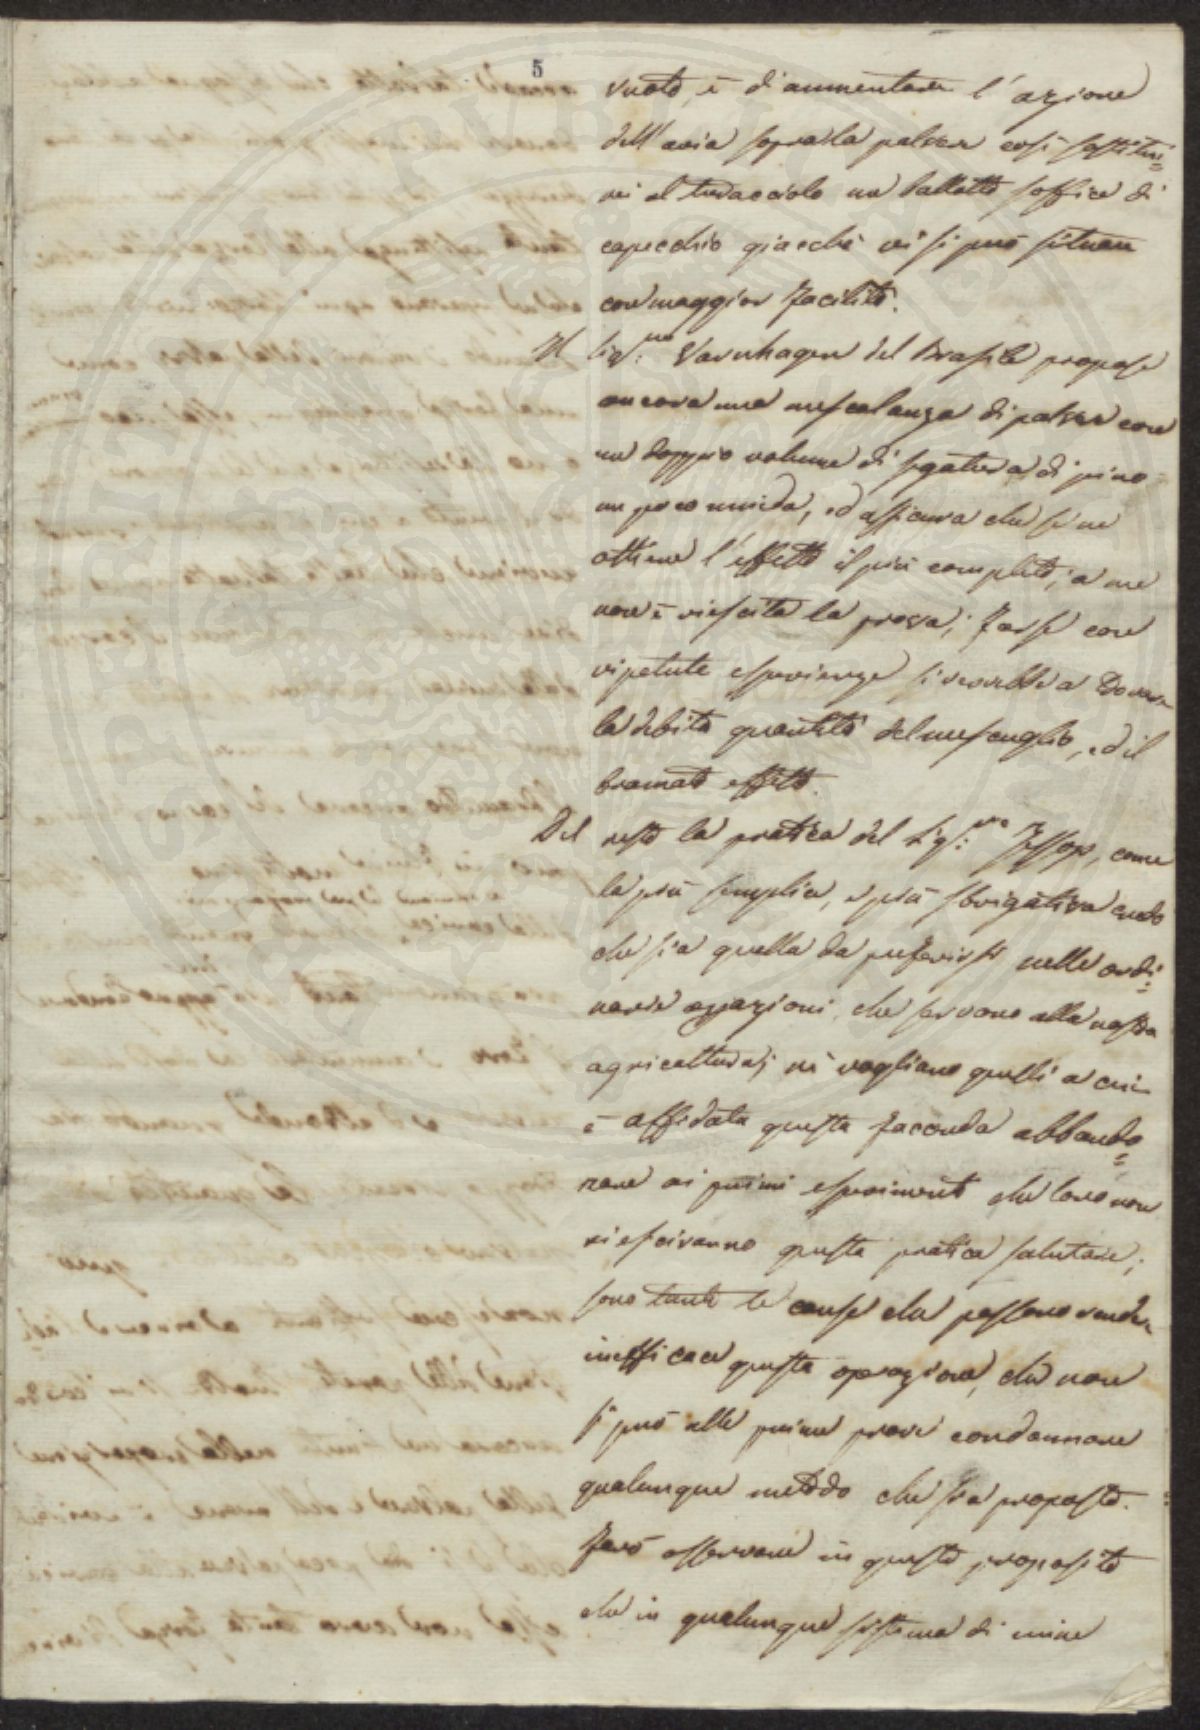 5
vuoto, è d'aumentare l'azione
dell'aria sopra la polvere così sostitui=
rei al turacciolo unballotto soffice di
capecchio giacchè vi si può situare
con maggior facilità.
Il Sig.re Varnhagen del Brasile propose
ancora una mescolanza di polvere con
un doppio volume di segatura di pino
un poco umida, ed assicura che se ne
ottiene l'effetto il più completo; a me
non è riescita la prova; forse con
ripetute esperienze si verrebbe a
la debita quantità del mescuglio, ed il
bramato effetto.
Del resto la pratica del Sig.re Jessop, come
la più semplice, e più sbrigativa credo
che sia quella da preferirsi nelle ordi=
narie operazioni, che servono alla nostra
agricoltura; nè vogliano quelli a cui
è affidata questa faccenda abbando=
nare ai primi esperimenti che loro non
riesciranno questa pratica salutare;
sono tante le cause che possono render
inefficace questa operazione, che non
si può alle prime prove condannare
qualunque metodo che sia proposto.
Farò osservare in questo proposito
che in qualunque sistema di mine